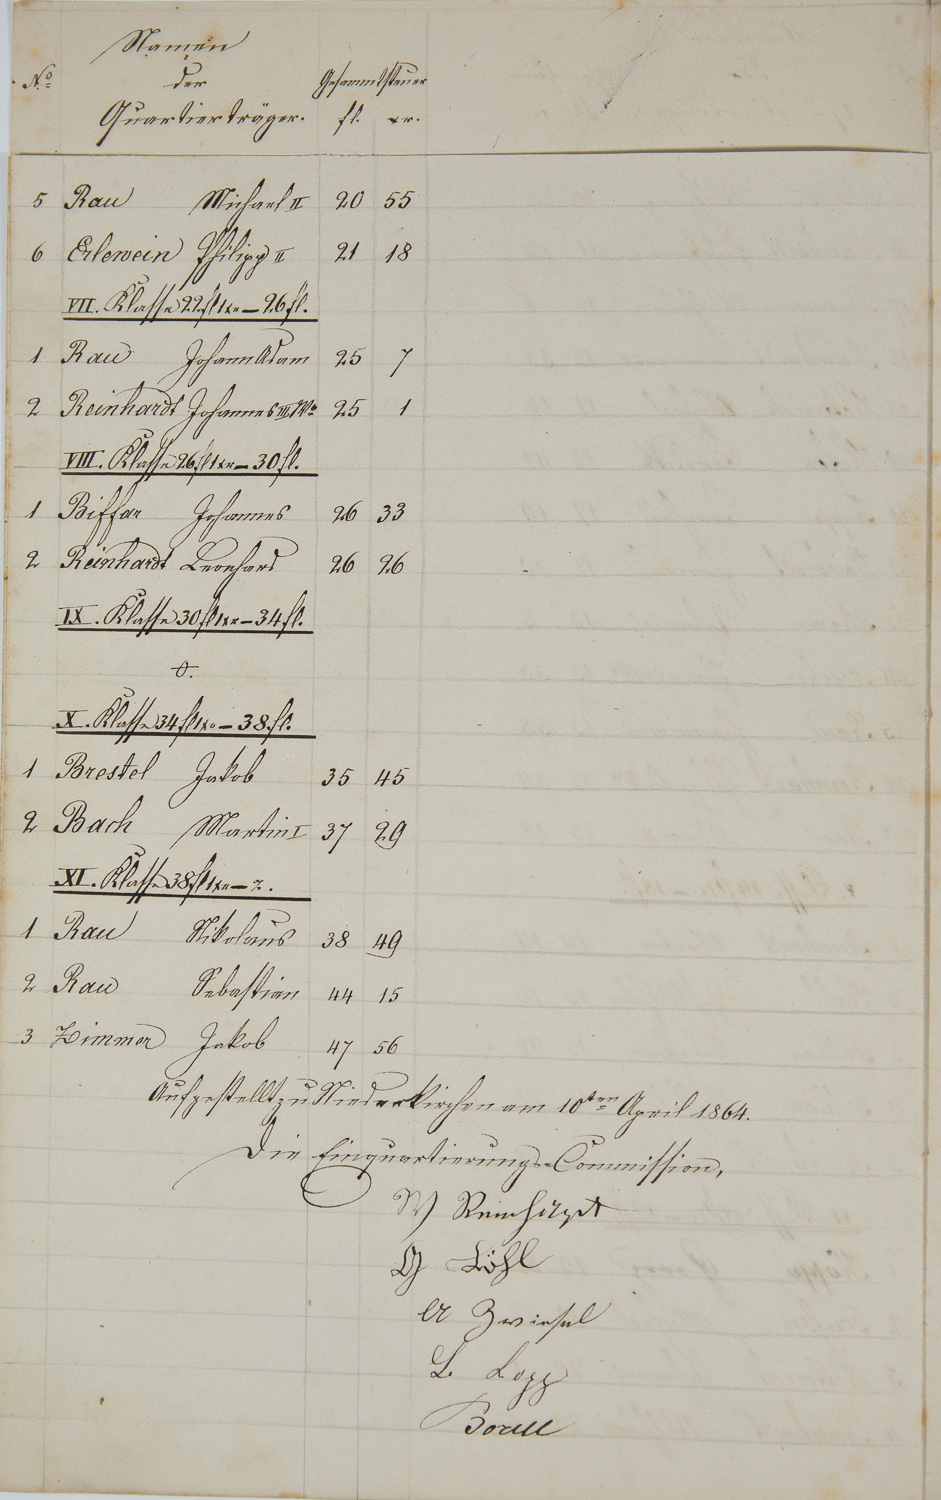 Namen
No. der Gesammtsteuer
Quartierträger. fl. xr.
5 Rau Michael II 20 55
6 Erlewein Philipp II 21 18
VII. Klasse 22 fl 1xr – 26 fl.
1 Rau Johann Adam 25 7
2 Reinhardt Johannes III. Ww. 25 1
VIII. Klasse 26 fl 1xr – 30 fl.
1 Biffar Johannes 26 33
2 Reinhardt Leonhard 26 26
IX. Klasse 30 fl 1xr – 34 fl.
0.
X. Klasse 34 fl 1xr – 38 fl.
1 Brestel Jakob 35 45
2 Bach Martin I 37 29
XI. Klasse 38 fl 1xr –
1 Rau Nikolaus 38 49
2 Rau Sebastian 44 15
3 Zimmer Jakob 47 56
Aufgestellt zu Niederkirchen am 10ten April 1864.
Die Einquartierungs-Commission,
W Reinhardt
G Löhl
A Zwiesel
L Lopp
Borell